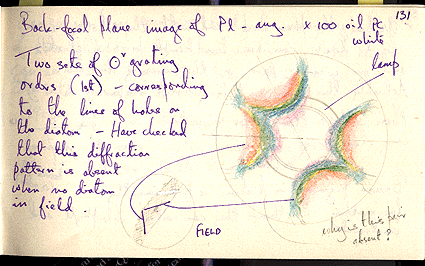 131
Back-focal plane image of Pl-ang. x 100 oil PC
white
Two sets of 0° grating
orders (1st) - corresponding
to the lines of holes on
the diatom - Have checked
that this diffraction
pattern is absent
when no diatom
in field.
lamp
FIELD
why is this pair
absent?